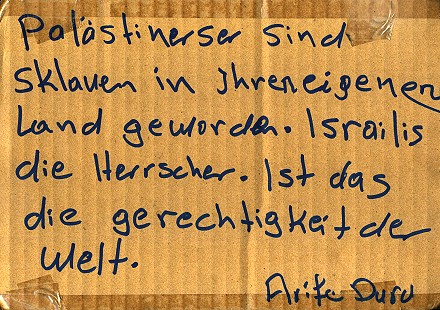 Palästinenser sind
Sklaven in Ihreneigenen
Land geworden. Israilis
die Herrscher. Ist das
die gerechtigkeit der
Welt.
Arife Duru